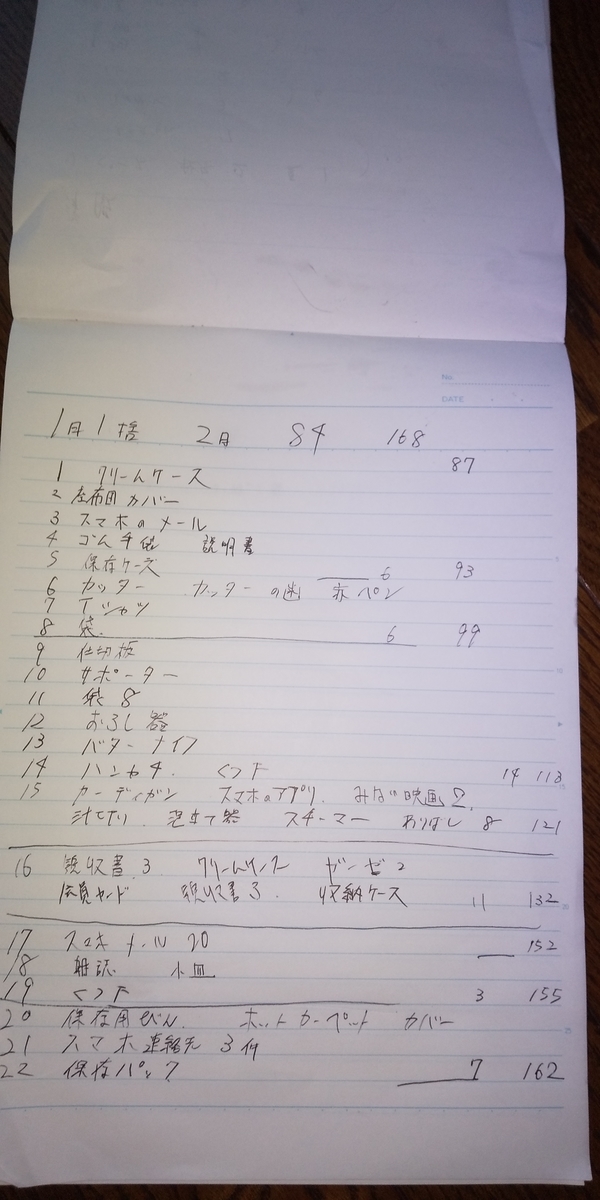 No.
DATE
1月1捨 2月 84 168
87
1 クリームケース
2 座布団カバー
3 スマホのメール
4 ゴム手袋 説明書
5 保存ケース 6 93
6 カッター カッターの歯 赤ペン
7 Tシャツ
8 袋 6 99
9 仕切板
10 サポーター
11 袋 8
12 おろし器
13 バターナイフ
14 ハンカチ. くつ下 14 113
15 カーディガン スマホのアプリ. みない映画2.
泡立て器 スチーマー 8 121
16 領収書 3
会員カード 領収書3. 収納ケース 11 132
17 スマホ メール 20 152
18 雑誌 小皿
19 くつ下 3 155
20 保存用びん. ホットカーペット カバー
21 スマホ連絡先 3件
22 保存パック 7 162